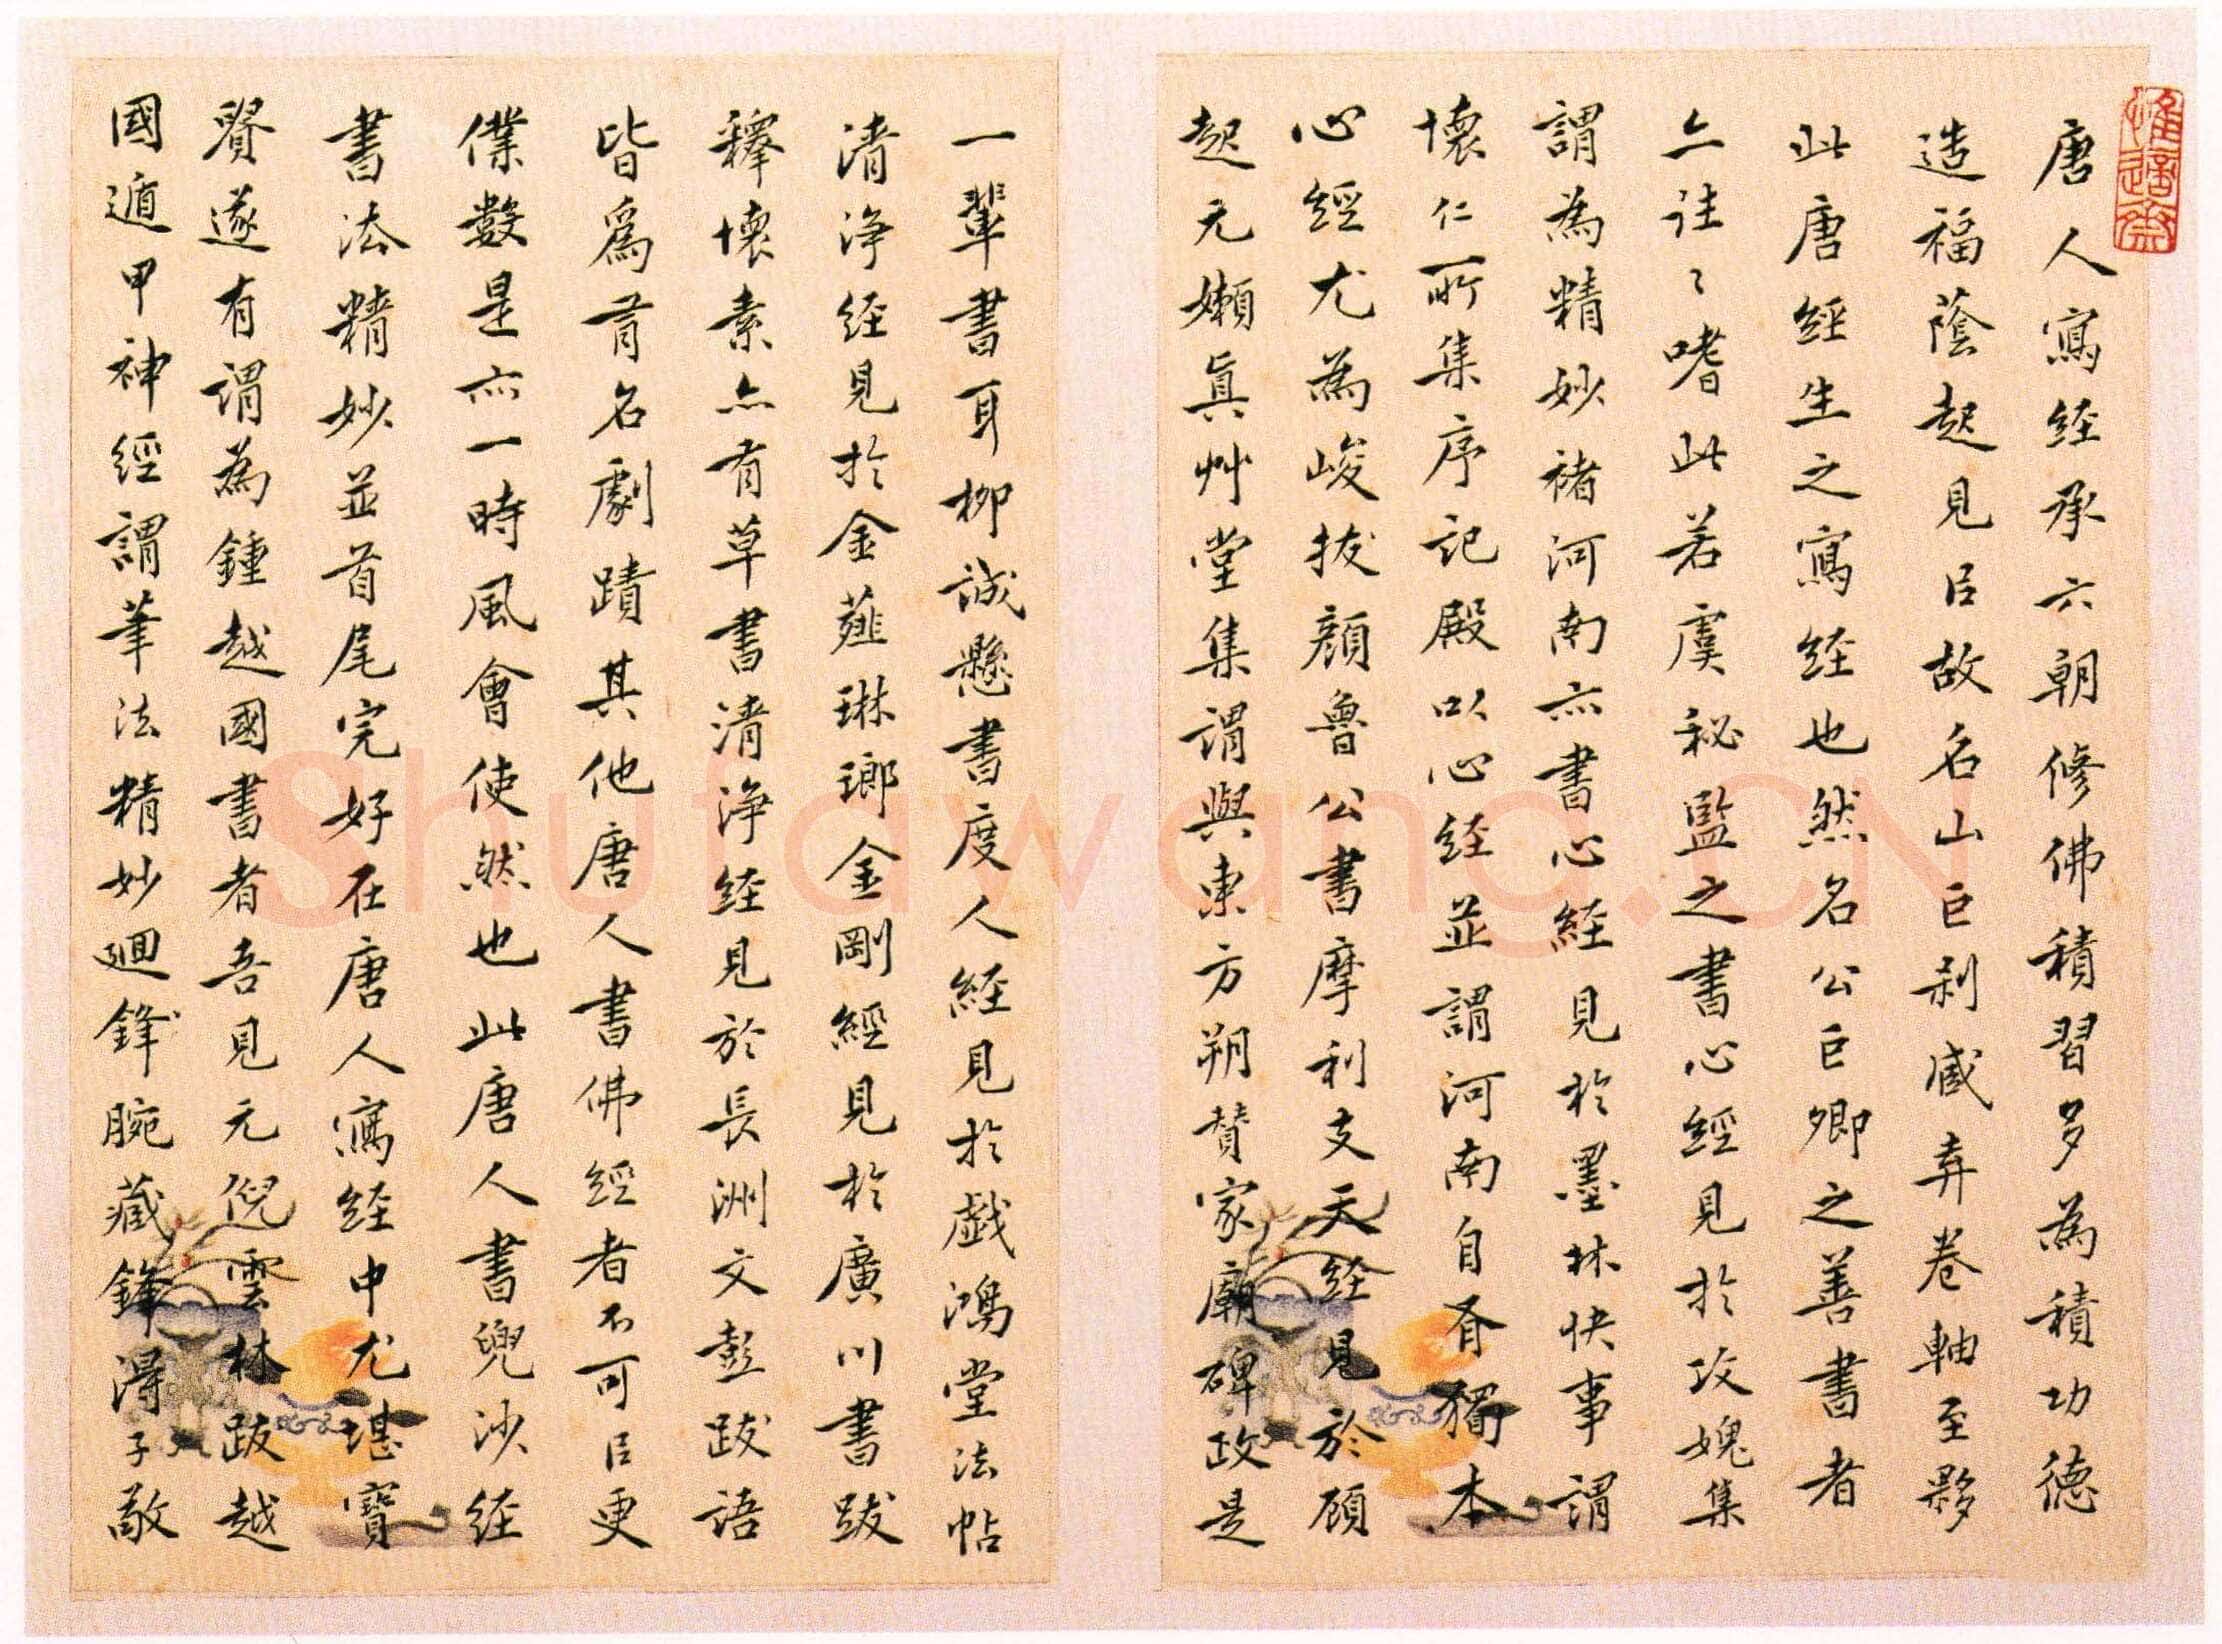 唐人寫経承六朝修佛積習多為積功德
造福蔭起見㠯故名山巨刹咸弆卷軸至夥
此唐經生之寫経也然名公巨卿之善書者
亠往〻嗜此若虞秘監之書心經見於攻媿集
謂為精妙褚河南亦書心經見於墨林快事謂
懷仁所集序記殿以心経並謂河南自有獨本
心經尤為峻拔顔魯公書摩利支天経見於顧
起元嬾真艸堂集謂與東方朔賛家廟碑政是
一輩書耳柳誠懸書度人經見於戲鴻堂法帖
清浄経見於金薤琳瑯金剛經見於廣川書跋
釋懷素亠有草書清浄経見於長洲文彭跋語
皆為有名劇蹟其他唐人書佛經者不可㠯更
僕數是亦一時風會使然也此唐人書兜沙経
書法精妙並首尾完好在唐人寫経中尤堪寶
賢遂有謂為鍾越國書者吾見元倪雲林跋越
國遁甲神經謂筆法精妙廻鋒腕藏鋒得子敬
Shufawang.CN